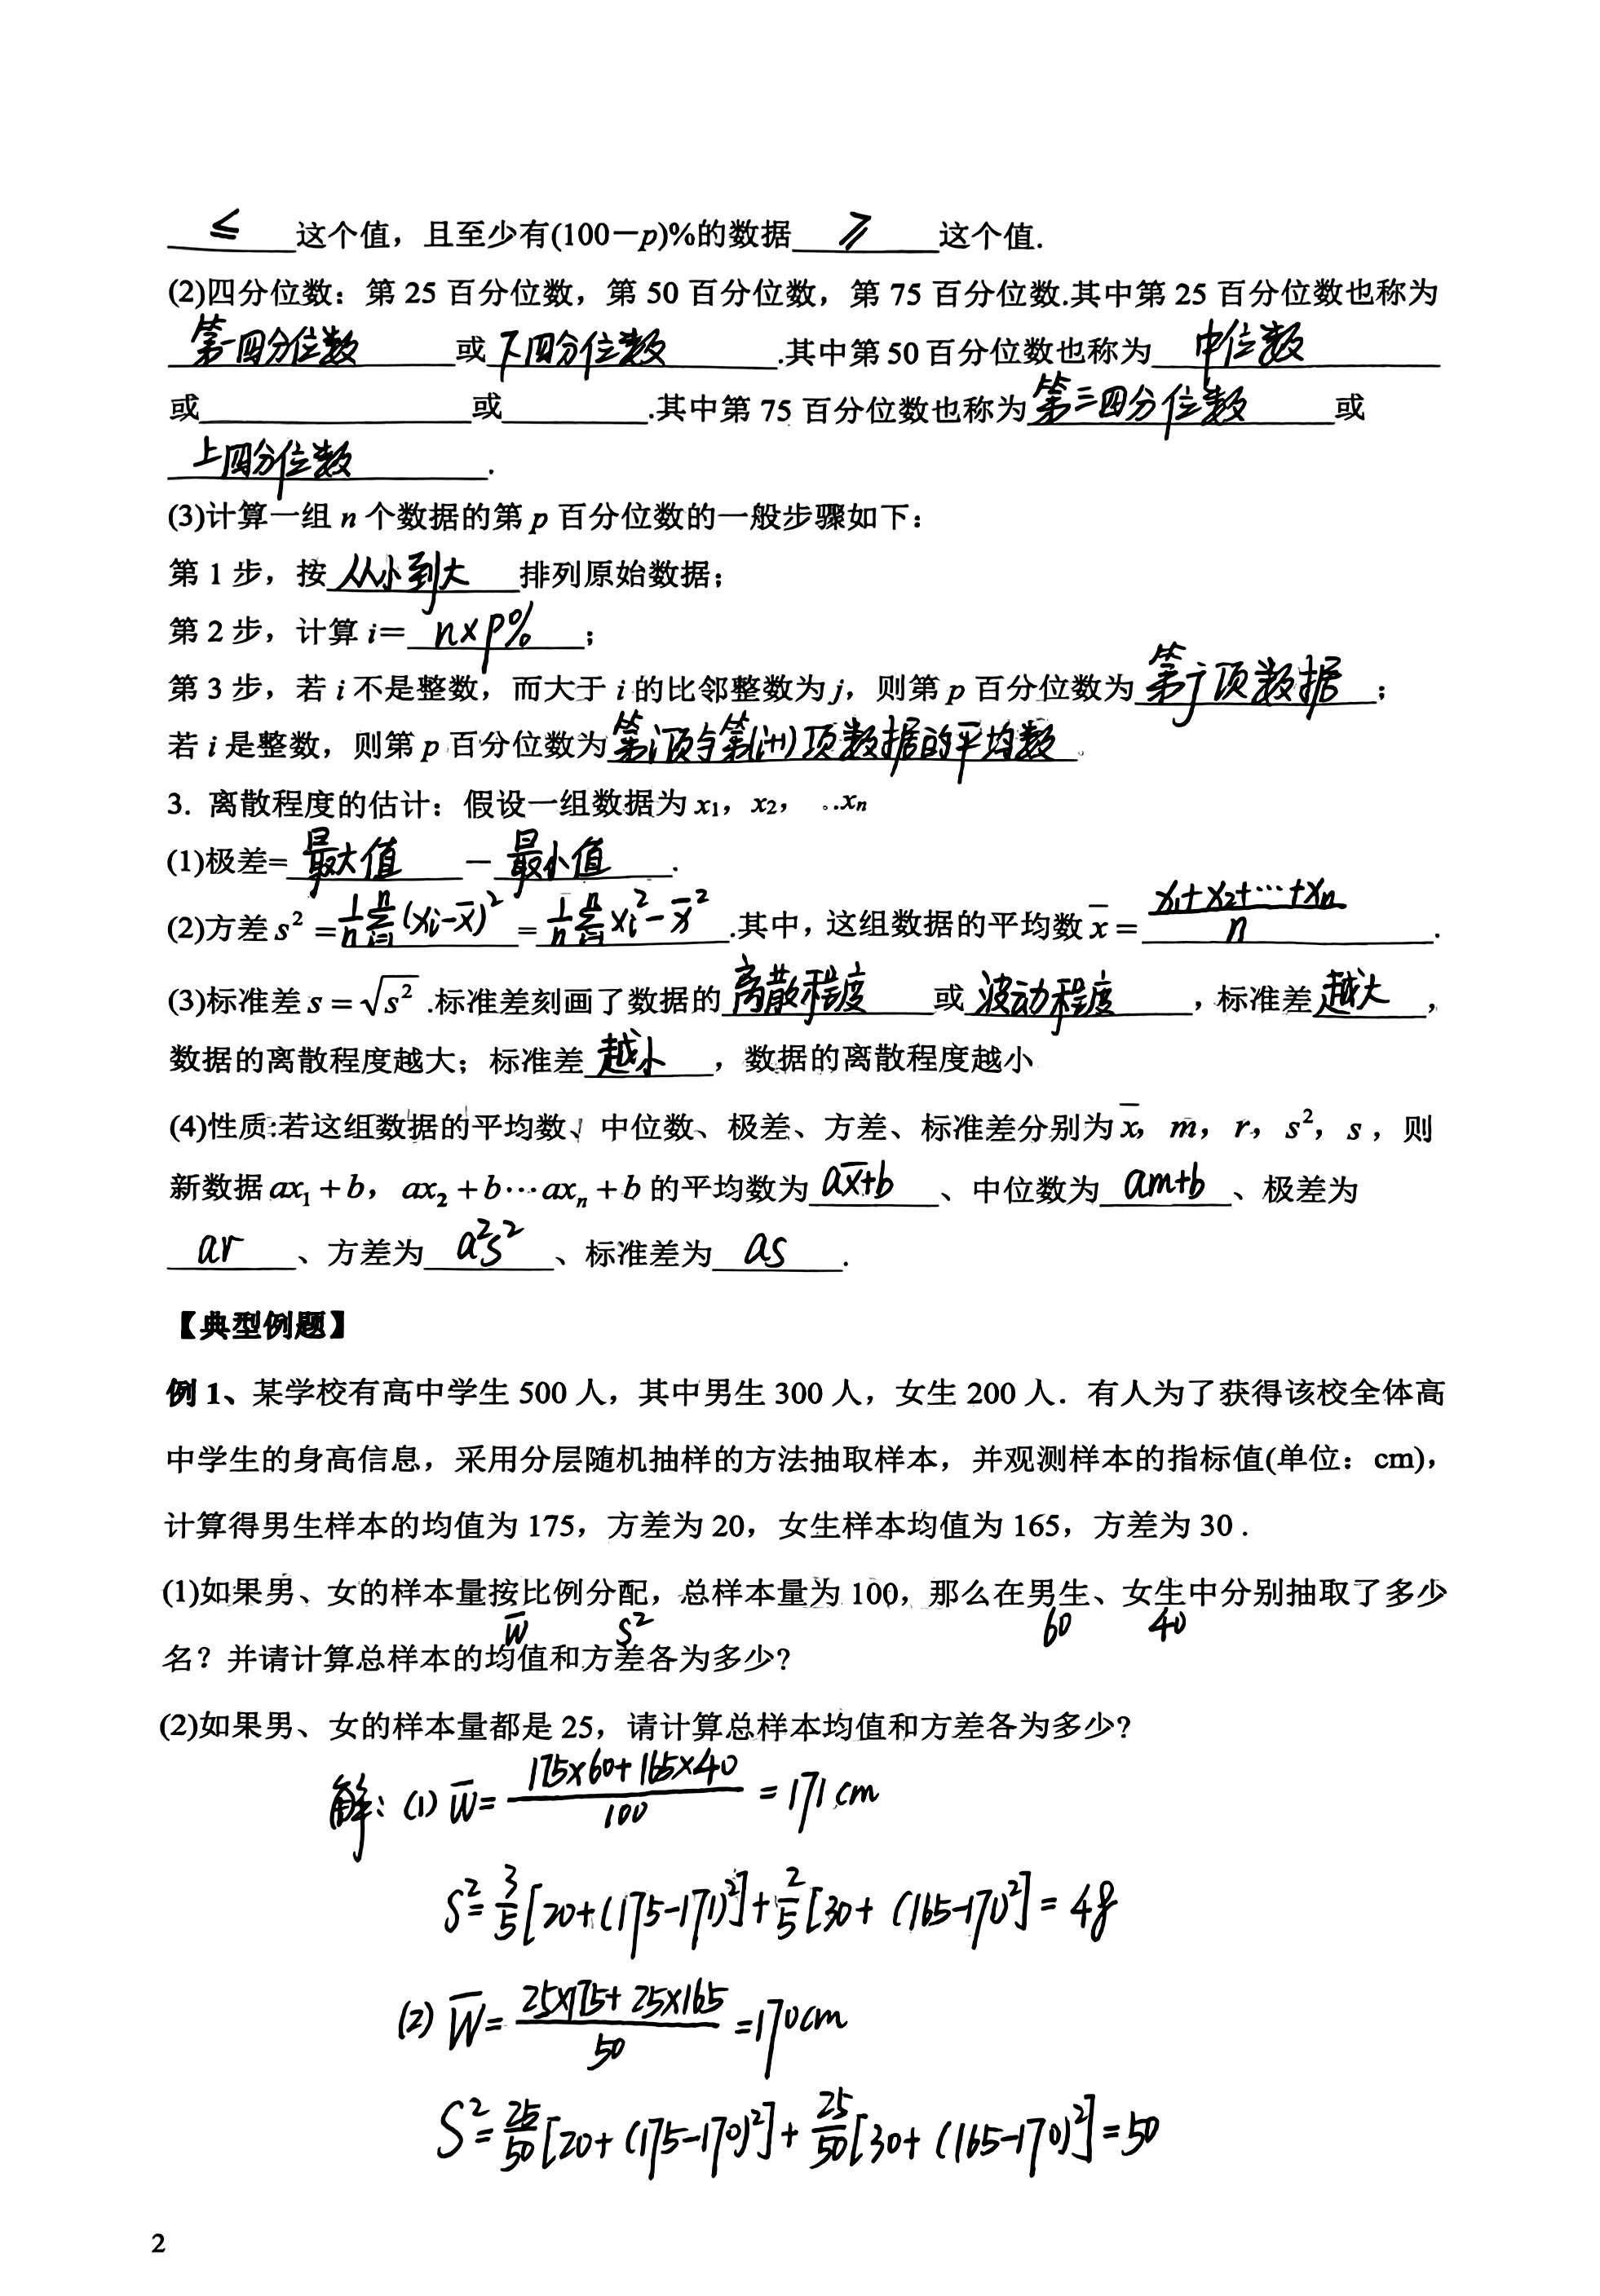 ≤这个值，且至少有(100－p)%的数据≥这个值.
(2)四分位数：第 25 百分位数，第 50 百分位数，第 75 百分位数.其中第 25 百分位数也称为
第一四分位数或下四分位数.其中第 50 百分位数也称为中位数
或______或______.其中第 75 百分位数也称为第三四分位数或
上四分位数.
(3)计算一组 n 个数据的第 p 百分位数的一般步骤如下：
第 1 步，按从小到大排列原始数据；
第 2 步，计算 i＝n×p%；
第 3 步，若 i 不是整数，而大于 i 的比邻整数为 j，则第 p 百分位数为第j项数据；
若 i 是整数，则第 p 百分位数为第i项与第(i+1)项数据的平均数。
3. 离散程度的估计：假设一组数据为 x₁，x₂，…xₙ
(1)极差=最大值－最小值.
(2)方差 s² = 1/n ∑ⁿᵢ₌₁ (xᵢ-x̄)² = 1/n ∑ⁿᵢ₌₁ xᵢ² - x̄².其中，这组数据的平均数 x̄ = (x₁+x₂+⋯+xₙ)/n.
(3)标准差 s = √s² .标准差刻画了数据的离散程度或波动程度，标准差越大，
数据的离散程度越大；标准差越小，数据的离散程度越小
(4)性质:若这组数据的平均数、中位数、极差、方差、标准差分别为 x̄，m，r，s²，s，则
新数据 ax₁+b，ax₂+b⋯axₙ+b 的平均数为ax̄+b、中位数为am+b、极差为
ar、方差为a²s²、标准差为as.
【典型例题】
例 1、某学校有高中学生 500 人，其中男生 300 人，女生 200 人．有人为了获得该校全体高
中学生的身高信息，采用分层随机抽样的方法抽取样本，并观测样本的指标值(单位：cm)，
计算得男生样本的均值为 175，方差为 20，女生样本均值为 165，方差为 30 .
(1)如果男、女的样本量按比例分配，总样本量为 100，那么在男生、女生中分别抽取了多少
w̄ s² 60 40
名？并请计算总样本的均值和方差各为多少?
(2)如果男、女的样本量都是 25，请计算总样本均值和方差各为多少?
解：(1) w̄ = (175×60+165×40)/100 = 171 cm
S² = 3/5[20+(175-171)²]+2/5[30+(165-171)²] = 48
(2) w̄ = (25×175+25×165)/50 = 170cm
S² = 25/50[20+(175-170)²]+25/50[30+(165-170)²]=50
2